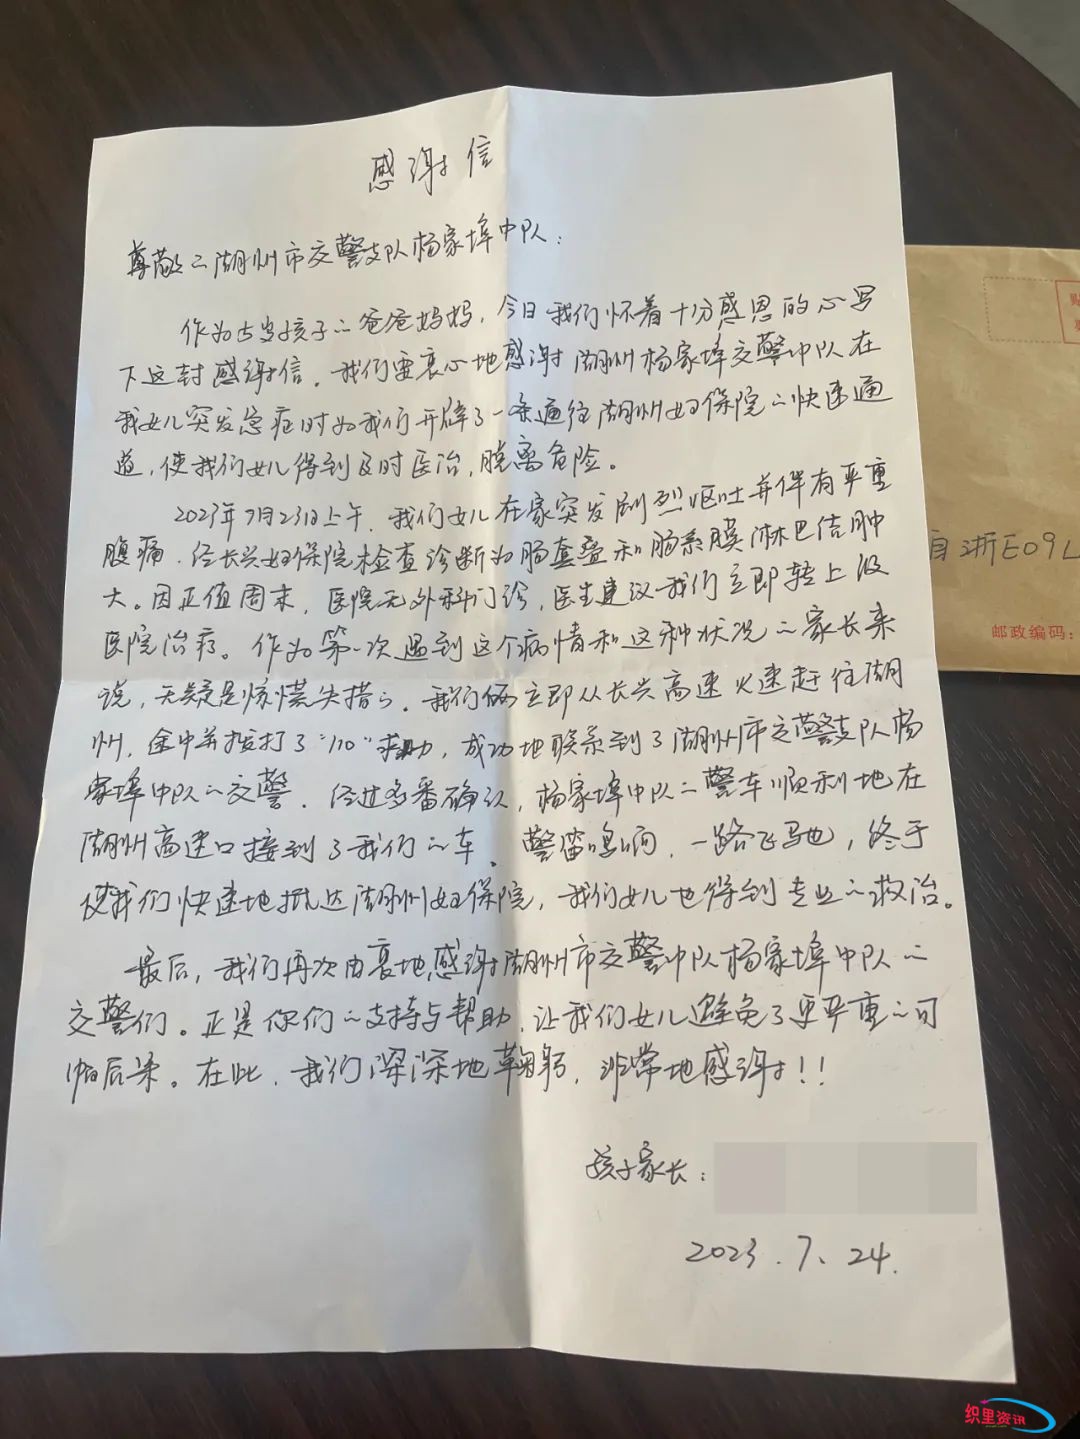 感谢信
尊敬的湖州市交警支队杨家埠中队：
作为5岁孩子的爸爸妈妈，今日我们怀着十分感恩的心写
下这封感谢信，我们要衷心地感谢湖州杨家埠交警中队在
我女儿突发急症时为我们开辟了一条通往湖州妇保院的快速通
道，使我们女儿得到及时医治，脱离危险。
2023年7月23日上午，我们女儿在家突发剧烈呕吐并伴有严重
腹痛，经长兴妇保院检查诊断为肠套叠和肠系膜淋巴结肿
大。因正值周末，医院无外科门诊，医生建议我们立即转上级
医院治疗。作为第一次遇到这个病情和这种状况的家长来
说，无疑是惊慌失措的。我们俩立即从长兴高速火速赶往湖
州，途中并拨打了“110”求助，成功地联系到了湖州市交警支队杨
家埠中队的交警。经过多番确认，杨家埠中队的警车顺利地在
湖州高速口接到了我们的车。警笛鸣响，一路飞驰，终于
使我们快速地抵达湖州妇保院，我们女儿也得到专业的救治。
最后，我们再次由衷地感谢湖州市交警中队杨家埠中队的
交警们。正是你们的支持与帮助，让我们女儿避免了更严重的可
怕后果。在此，我们深深地鞠躬，非常地感谢！！
孩子家长：
2023.7、24.
自浙E09L
邮政编码：
织里资讯